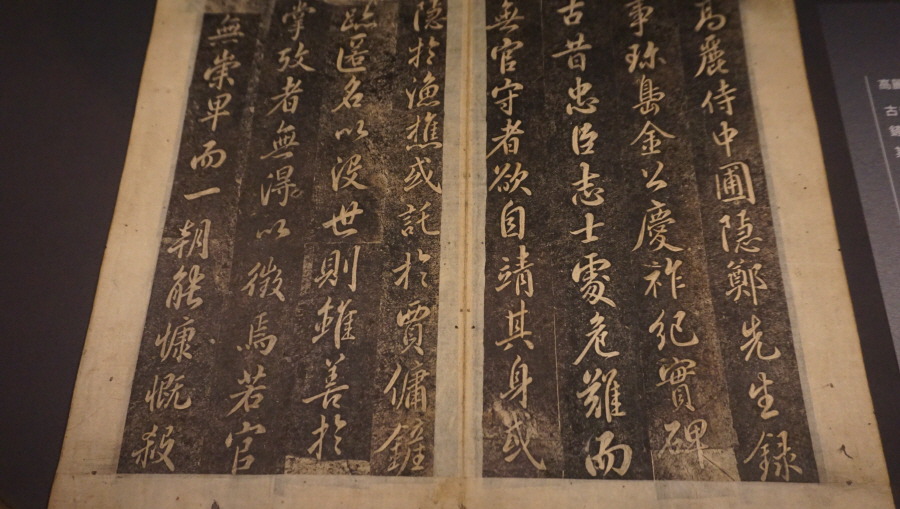 高麗侍中圃隱鄭先生録
事珎㠀金公慶祚紀實碑
古昔忠臣志士䖏危難而
無官守者欲自靖其身或
隱扵漁樵或託扵賈傭
跡匿名以没世則雖善扵
掌攷者無得以徵焉若官
無崇卑而一朝能慷慨殺
高麗
古